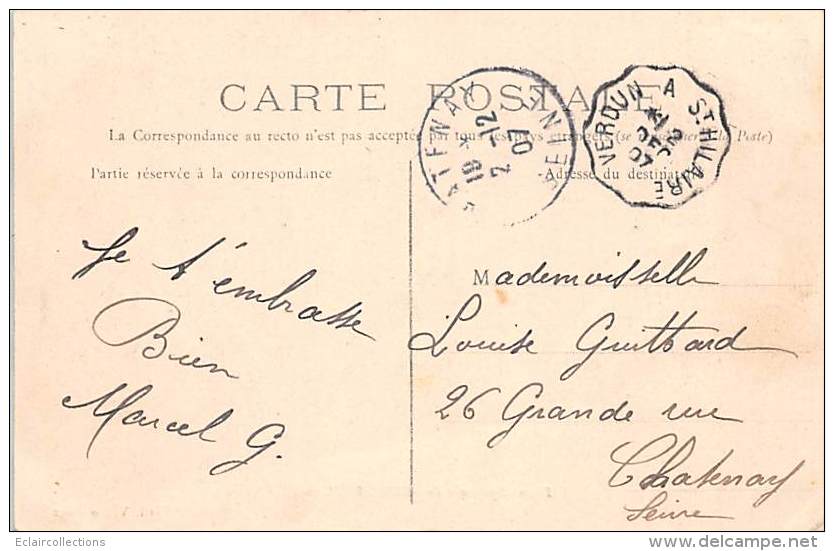 CARTE POSTALE
La Correspondance au recto n'est pas acceptée par tous les pays étrangers (se la Poste)
Partie réservée à la correspondance
Adresse du destinataire
CHATENAY SEINE
16 * 2 -12 07
VERDUN A ST HILAIRE
1 DEC 07
Je t'embrasse
Bien
Marcel G.
Mademoisselle
Louise Guittard
26 Grande rue
Chatenay
Seine
Eclaircollections
www.delcampe.net